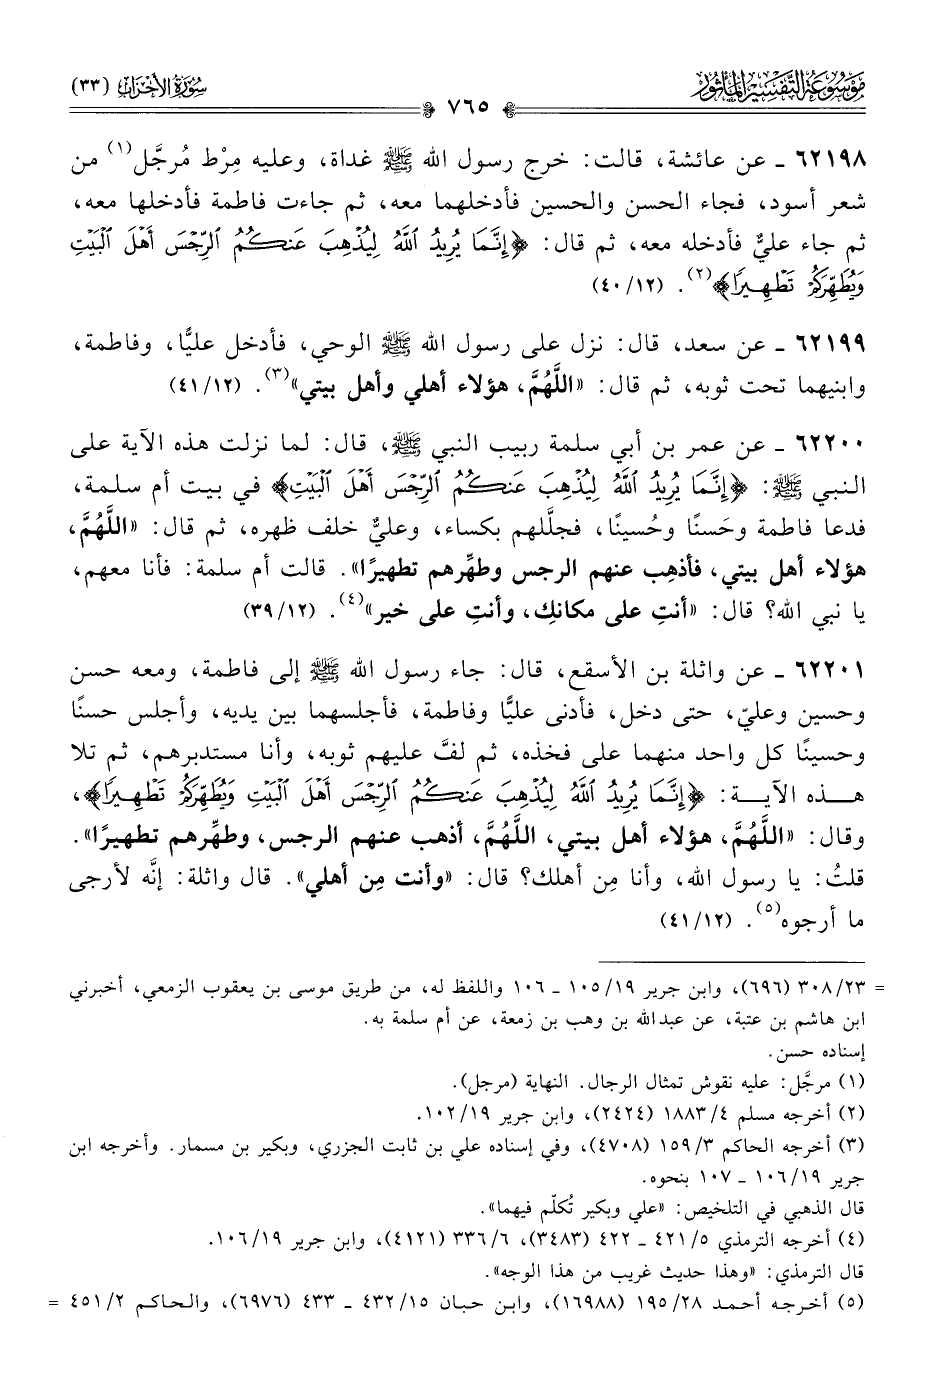 موسوعة التفسير المأثور
سورة الأحزاب (٣٣)
٧٦٥
٦٢١٩٨ ـ عن عائشة، قالت: خرج رسول الله ﷺ غداة، وعليه مِرْط مُرجَّل(١) من
شعر أسود، فجاء الحسن والحسين فأدخلهما معه، ثم جاءت فاطمة فأدخلها معه،
ثم جاء عليٌّ فأدخله معه، ثم قال: ﴿إِنَّمَا يُرِيدُ ٱللَّهُ لِيُذْهِبَ عَنكُمُ ٱلرِّجْسَ أَهْلَ ٱلْبَيْتِ
وَيُطَهِّرَكُمْ تَطْهِيرًا﴾(٢). (١٢/ ٤٠)
٦٢١٩٩ ـ عن سعد، قال: نزل على رسول الله ﷺ الوحي، فأدخل عليًّا، وفاطمة،
وابنيهما تحت ثوبه، ثم قال: «اللَّهُمَّ، هؤلاء أهلي وأهل بيتي»(٣). (١٢/ ٤١)
٦٢٢٠٠ ـ عن عمر بن أبي سلمة ربيب النبي ﷺ، قال: لما نزلت هذه الآية على
النبي ﷺ: ﴿إِنَّمَا يُرِيدُ ٱللَّهُ لِيُذْهِبَ عَنكُمُ ٱلرِّجْسَ أَهْلَ ٱلْبَيْتِ﴾ في بيت أم سلمة،
فدعا فاطمة وحَسنًا وحُسينًا، فجلَّلهم بكساء، وعليٌّ خلف ظهره، ثم قال: «اللَّهُمَّ،
هؤلاء أهل بيتي، فأذهِب عنهم الرجس وطهِّرهم تطهيرًا». قالت أم سلمة: فأنا معهم،
يا نبي الله؟ قال: «أنتِ على مكانكِ، وأنتِ على خير»(٤). (١٢/ ٣٩)
٦٢٢٠١ ـ عن واثلة بن الأسقع، قال: جاء رسول الله ﷺ إلى فاطمة، ومعه حسن
وحسين وعليّ، حتى دخل، فأدنى عليًّا وفاطمة، فأجلسهما بين يديه، وأجلس حسنًا
وحسينًا كل واحد منهما على فخذه، ثم لفَّ عليهم ثوبه، وأنا مستدبرهم، ثم تلا
هـذه الآيـة: ﴿إِنَّمَا يُرِيدُ ٱللَّهُ لِيُذْهِبَ عَنكُمُ ٱلرِّجْسَ أَهْلَ ٱلْبَيْتِ وَيُطَهِّرَكُمْ تَطْهِيرًا﴾،
وقال: «اللَّهُمَّ، هؤلاء أهل بيتي، اللَّهُمَّ، أذهب عنهم الرجس، وطهِّرهم تطهيرًا».
قلتُ: يا رسول الله، وأنا مِن أهلك؟ قال: «وأنت مِن أهلي». قال واثلة: إنَّه لأرجى
ما أرجوه(٥). (١٢/ ٤١)
= ٣٠٨/٢٣ (٦٩٦)، وابن جرير ١٩/ ١٠٥ ـ ١٠٦ واللفظ له، من طريق موسى بن يعقوب الزمعي، أخبرني
ابن هاشم بن عتبة، عن عبدالله بن وهب بن زمعة، عن أم سلمة به.
إسناده حسن.
(١) مرجَّل: عليه نقوش تمثال الرجال. النهاية (مرجل).
(٢) أخرجه مسلم ٤/ ١٨٨٣ (٢٤٢٤)، وابن جرير ١٩/ ١٠٢.
(٣) أخرجه الحاكم ٣/ ١٥٩ (٤٧٠٨)، وفي إسناده علي بن ثابت الجزري، وبكير بن مسمار. وأخرجه ابن
جرير ١٩/ ١٠٦ ـ ١٠٧ بنحوه.
قال الذهبي في التلخيص: «علي وبكير تُكلّم فيهما».
(٤) أخرجه الترمذي ٥/ ٤٢١ ـ ٤٢٢ (٣٤٨٣)، ٦/ ٣٣٦ (٤١٢١)، وابن جرير ١٩/ ١٠٦.
قال الترمذي: «وهذا حديث غريب من هذا الوجه».
(٥) أخرجه أحمد ٢٨/ ١٩٥ (١٦٩٨٨)، وابن حبان ١٥/ ٤٣٢ ـ ٤٣٣ (٦٩٧٦)، والحاكم ٢/ ٤٥١ =